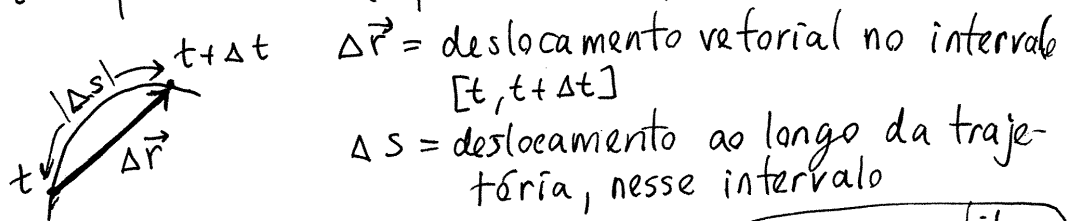 t+Δt
|Δs|
Δr⃗
t
Δr⃗ = deslocamento vetorial no intervalo
[t, t+Δt]
Δs = deslocamento ao longo da traje-
tória, nesse intervalo